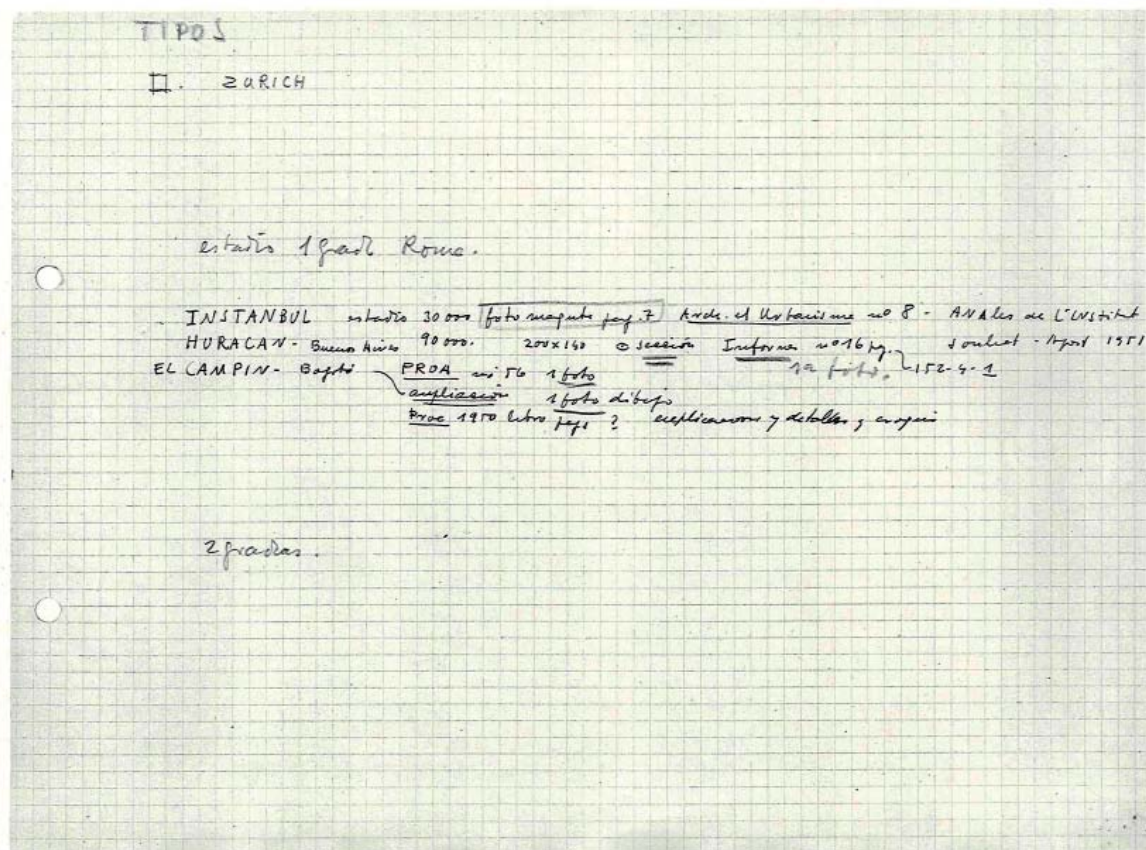 TIPOS
II. ZURICH
estadio 1 grad Roma.
INSTANBUL estadio 30000 foto maqueta pag. 7 Arch. et Urbanisme nº 8 - ANAles de L'INstitut
HURACAN - Buenos Aires 90000. 200x140 sección Informes nº 16 pg. Juillet - Agost 1951
1a foto. 152-4-1
EL CAMPIN - Bogotá PROA nº 56 1 foto
ampliación 1 foto dibujo
Proa 1950 libro pags ? explicaciones y detalles y croquis
2 gradas.